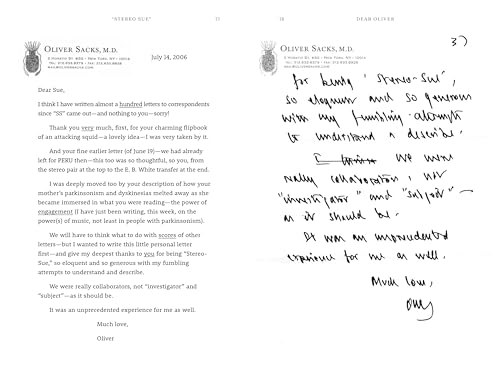 "STEREO SUE"
OLIVER SACKS, M.D.
2 HORATIO ST. #3G • NEW YORK, NY • 10014
July 14, 2006
Dear Sue,
I think I have written almost a hundred letters to correspondents
since "SS" came out—and nothing to you—sorry!
Thank you very much, first, for your charming flipbook
of an attacking squid—a lovely idea—I was very taken by it.
And your fine earlier letter (of June 19)—we had already
left for PERU then—this too was so thoughtful, so you, from
the stereo pair at the top to the E. B. White transfer at the end.
I was deeply moved too by your description of how your
mother's parkinsonism and dyskinesias melted away as she
became immersed in what you were reading—the power of
engagement (I have just been writing, this week, on the
power(s) of music, not least in people with parkinsonism).
We will have to think what to do with scores of other
letters—but I wanted to write this little personal letter
first—and give my deepest thanks to you for being "Stereo-
Sue," so eloquent and so generous with my fumbling
attempts to understand and describe.
We were really collaborators, not "investigator" and
"subject"—as it should be.
It was an unprecedented experience for me as well.
Much love,
Oliver
DEAR OLIVER
OLIVER SACKS, M.D.
2 HORATIO ST. #3G • NEW YORK, NY • 10014
3)
for being "Stereo-Sue",
so eloquent and so generous
with my fumbling attempts
to understand & describe.
We were
really collaborators, not
"investigator" and "subject" —
as it should be.
It was an unprecedented
experience for me as well.
Much love,